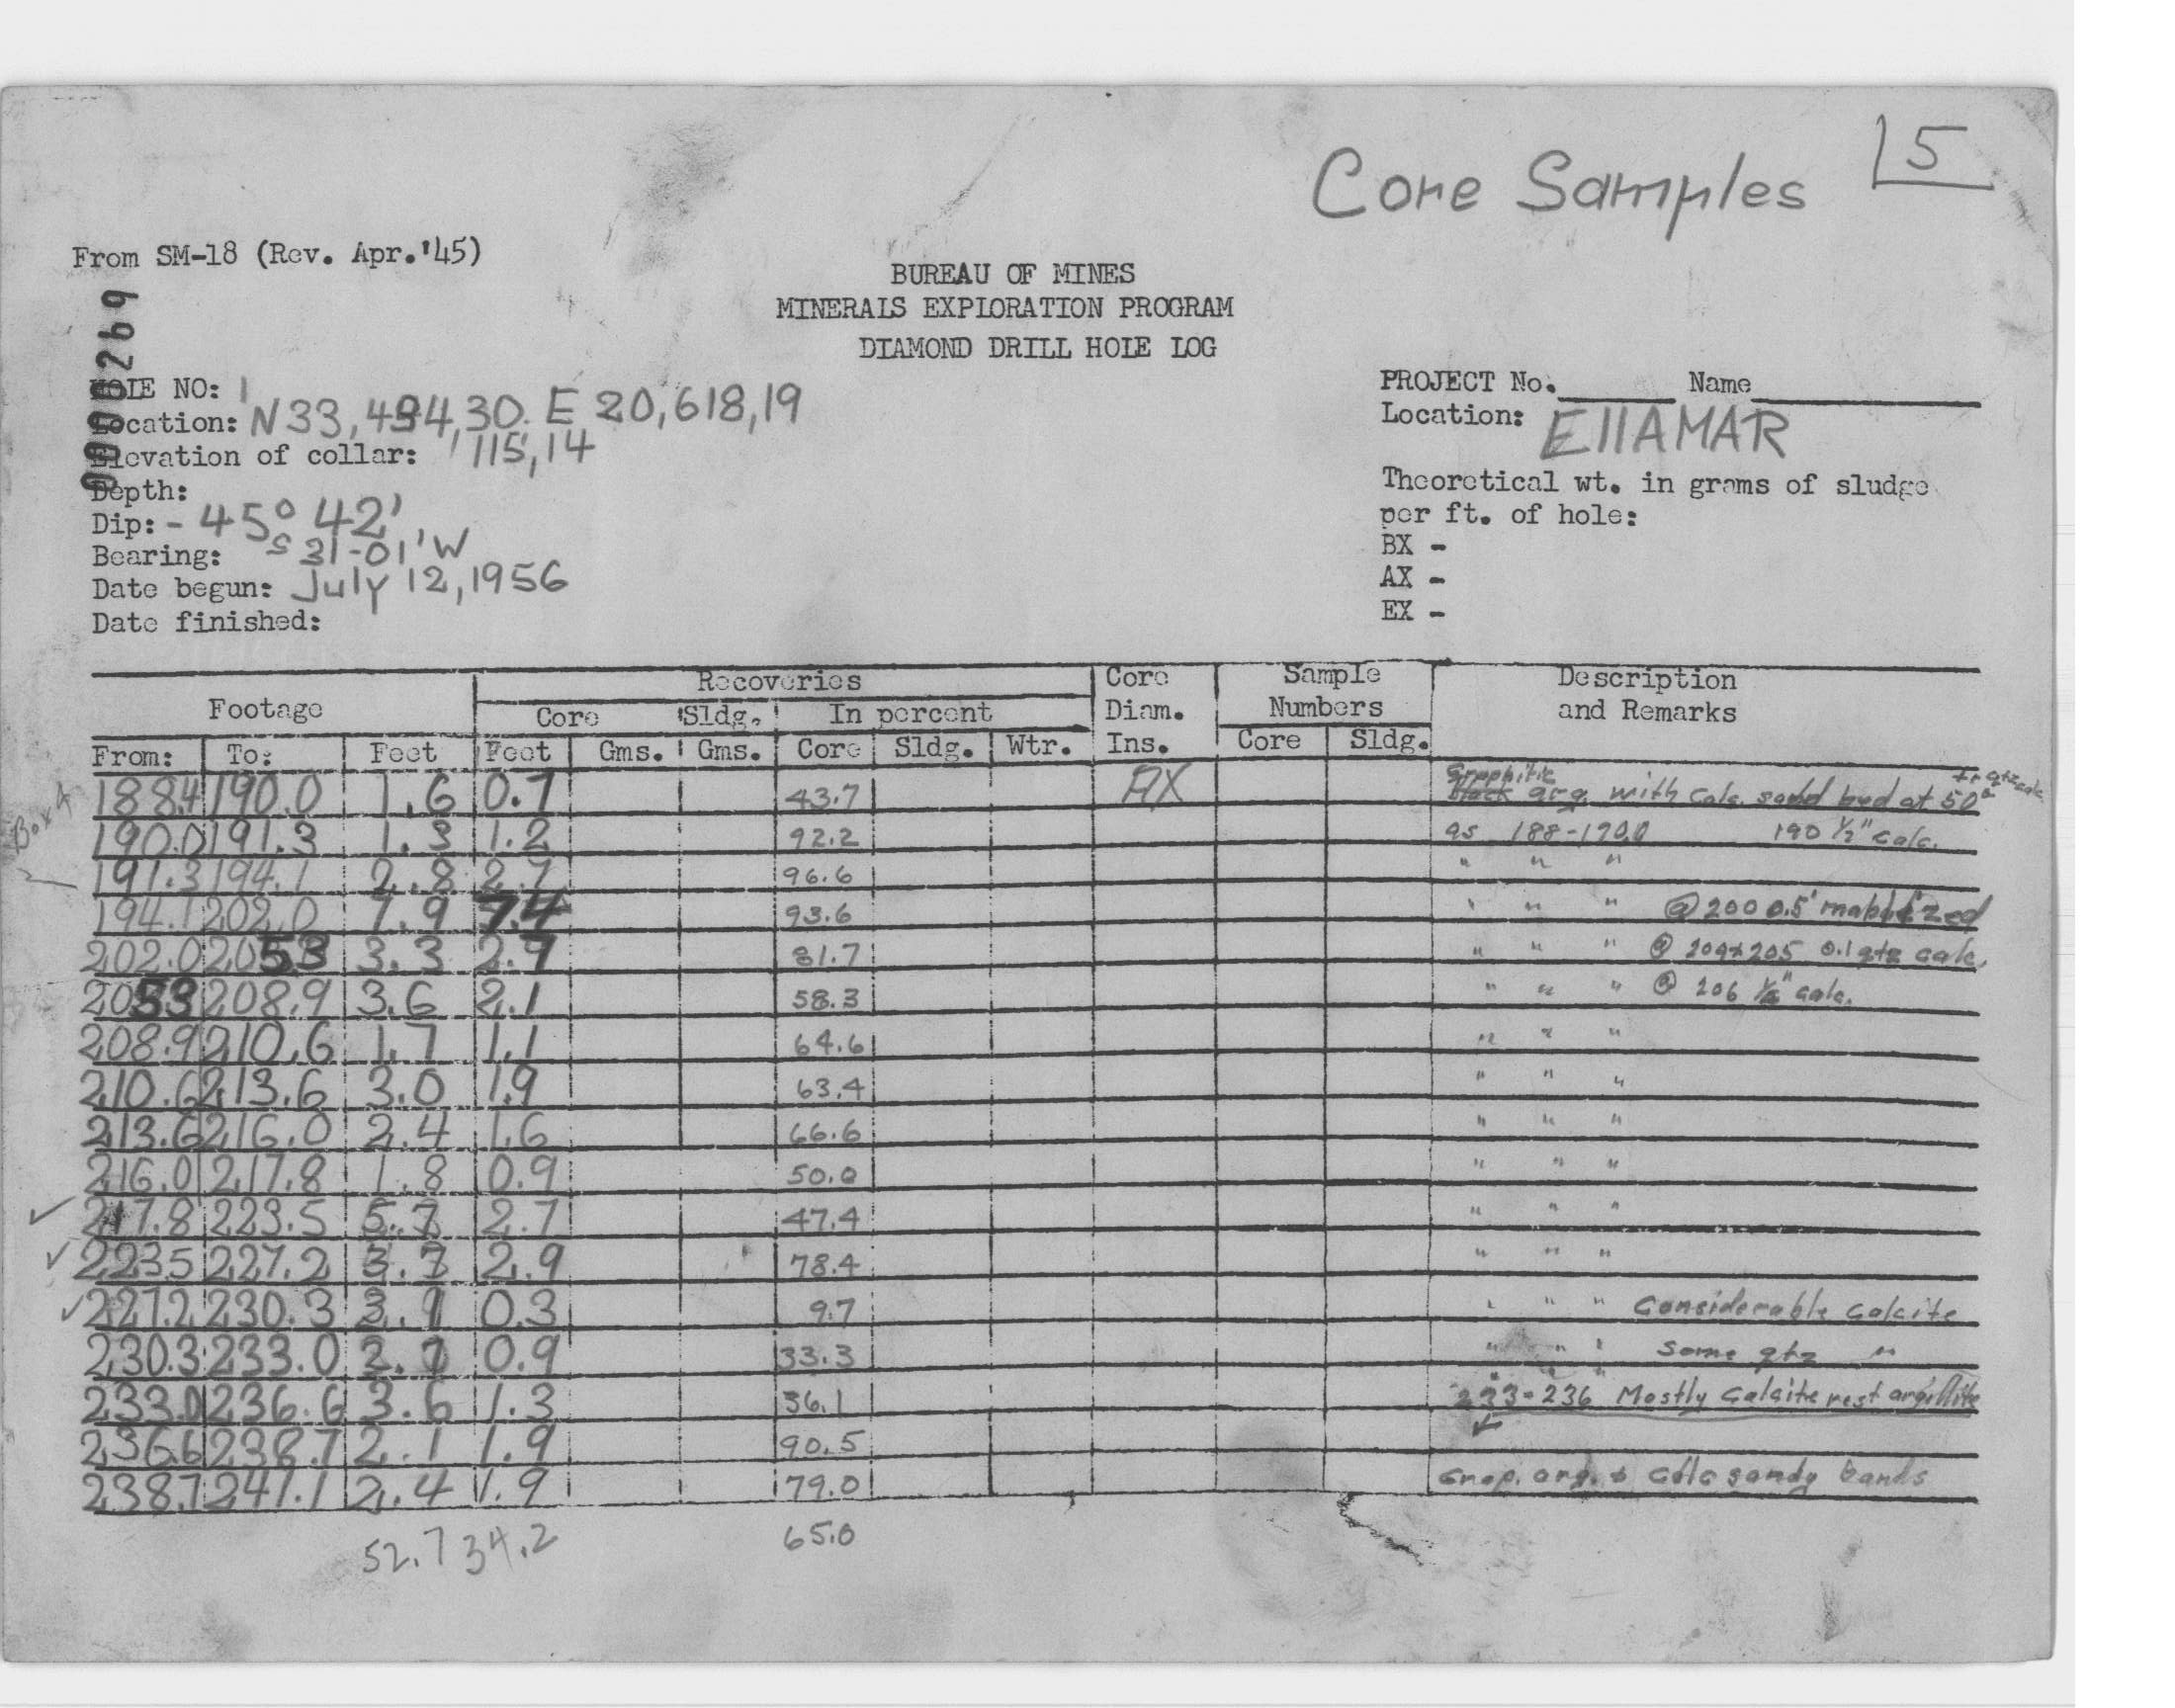 Core Samples 5
From SM-18 (Rev. Apr.'45)
BUREAU OF MINES
MINERALS EXPLORATION PROGRAM
DIAMOND DRILL HOLE LOG
HOLE NO: 1
Location: N 33,494,30. E 20,618,19
Elevation of collar: 115,14
Depth:
Dip: - 45° 42'
Bearing: S 31-01' W
Date begun: July 12, 1956
Date finished:
PROJECT No. Name
Location: EllAMAR
Theoretical wt. in grams of sludge
per ft. of hole:
BX -
AX -
EX -
Recoveries Core Sample Description
Footage Core Sldg. In percent Diam. Numbers and Remarks
From: To: Feet Feet Gms. Gms. Core Sldg. Wtr. Ins. Core Sldg.
Box 4
188.4 190.0 1.6 0.7 43.7 AX Graphitic arg. with calc. sand bed at 50°
190.0 191.3 1.3 1.2 92.2 as 188-190.0 190 1/2" calc.
191.3 194.1 2.8 2.7 96.6 " " "
194.1 202.0 7.9 7.4 93.6 " " " @ 200 0.5'
202.0 205.3 3.3 2.7 81.7 " " " @ 204 & 205 0.1 qtz calc.
205.3 208.9 3.6 2.1 58.3 " " " @ 206 calc.
208.9 210.6 1.7 1.1 64.6 " " "
210.6 213.6 3.0 1.9 63.4 " " "
213.6 216.0 2.4 1.6 66.6 " " "
216.0 217.8 1.8 0.9 50.0 " " "
217.8 223.5 5.7 2.7 47.4 " " "
223.5 227.2 3.7 2.9 78.4 " " "
227.2 230.3 3.1 0.3 9.7 " " " Considerable calcite
230.3 233.0 2.7 0.9 33.3 " " " Some qtz "
233.0 236.6 3.6 1.3 36.1 233-236 Mostly calcite rest argillite
236.6 238.7 2.1 1.9 90.5
238.7 241.1 2.4 1.9 79.0 Grap. arg. & calc sandy bands
52.7 34.2 65.0